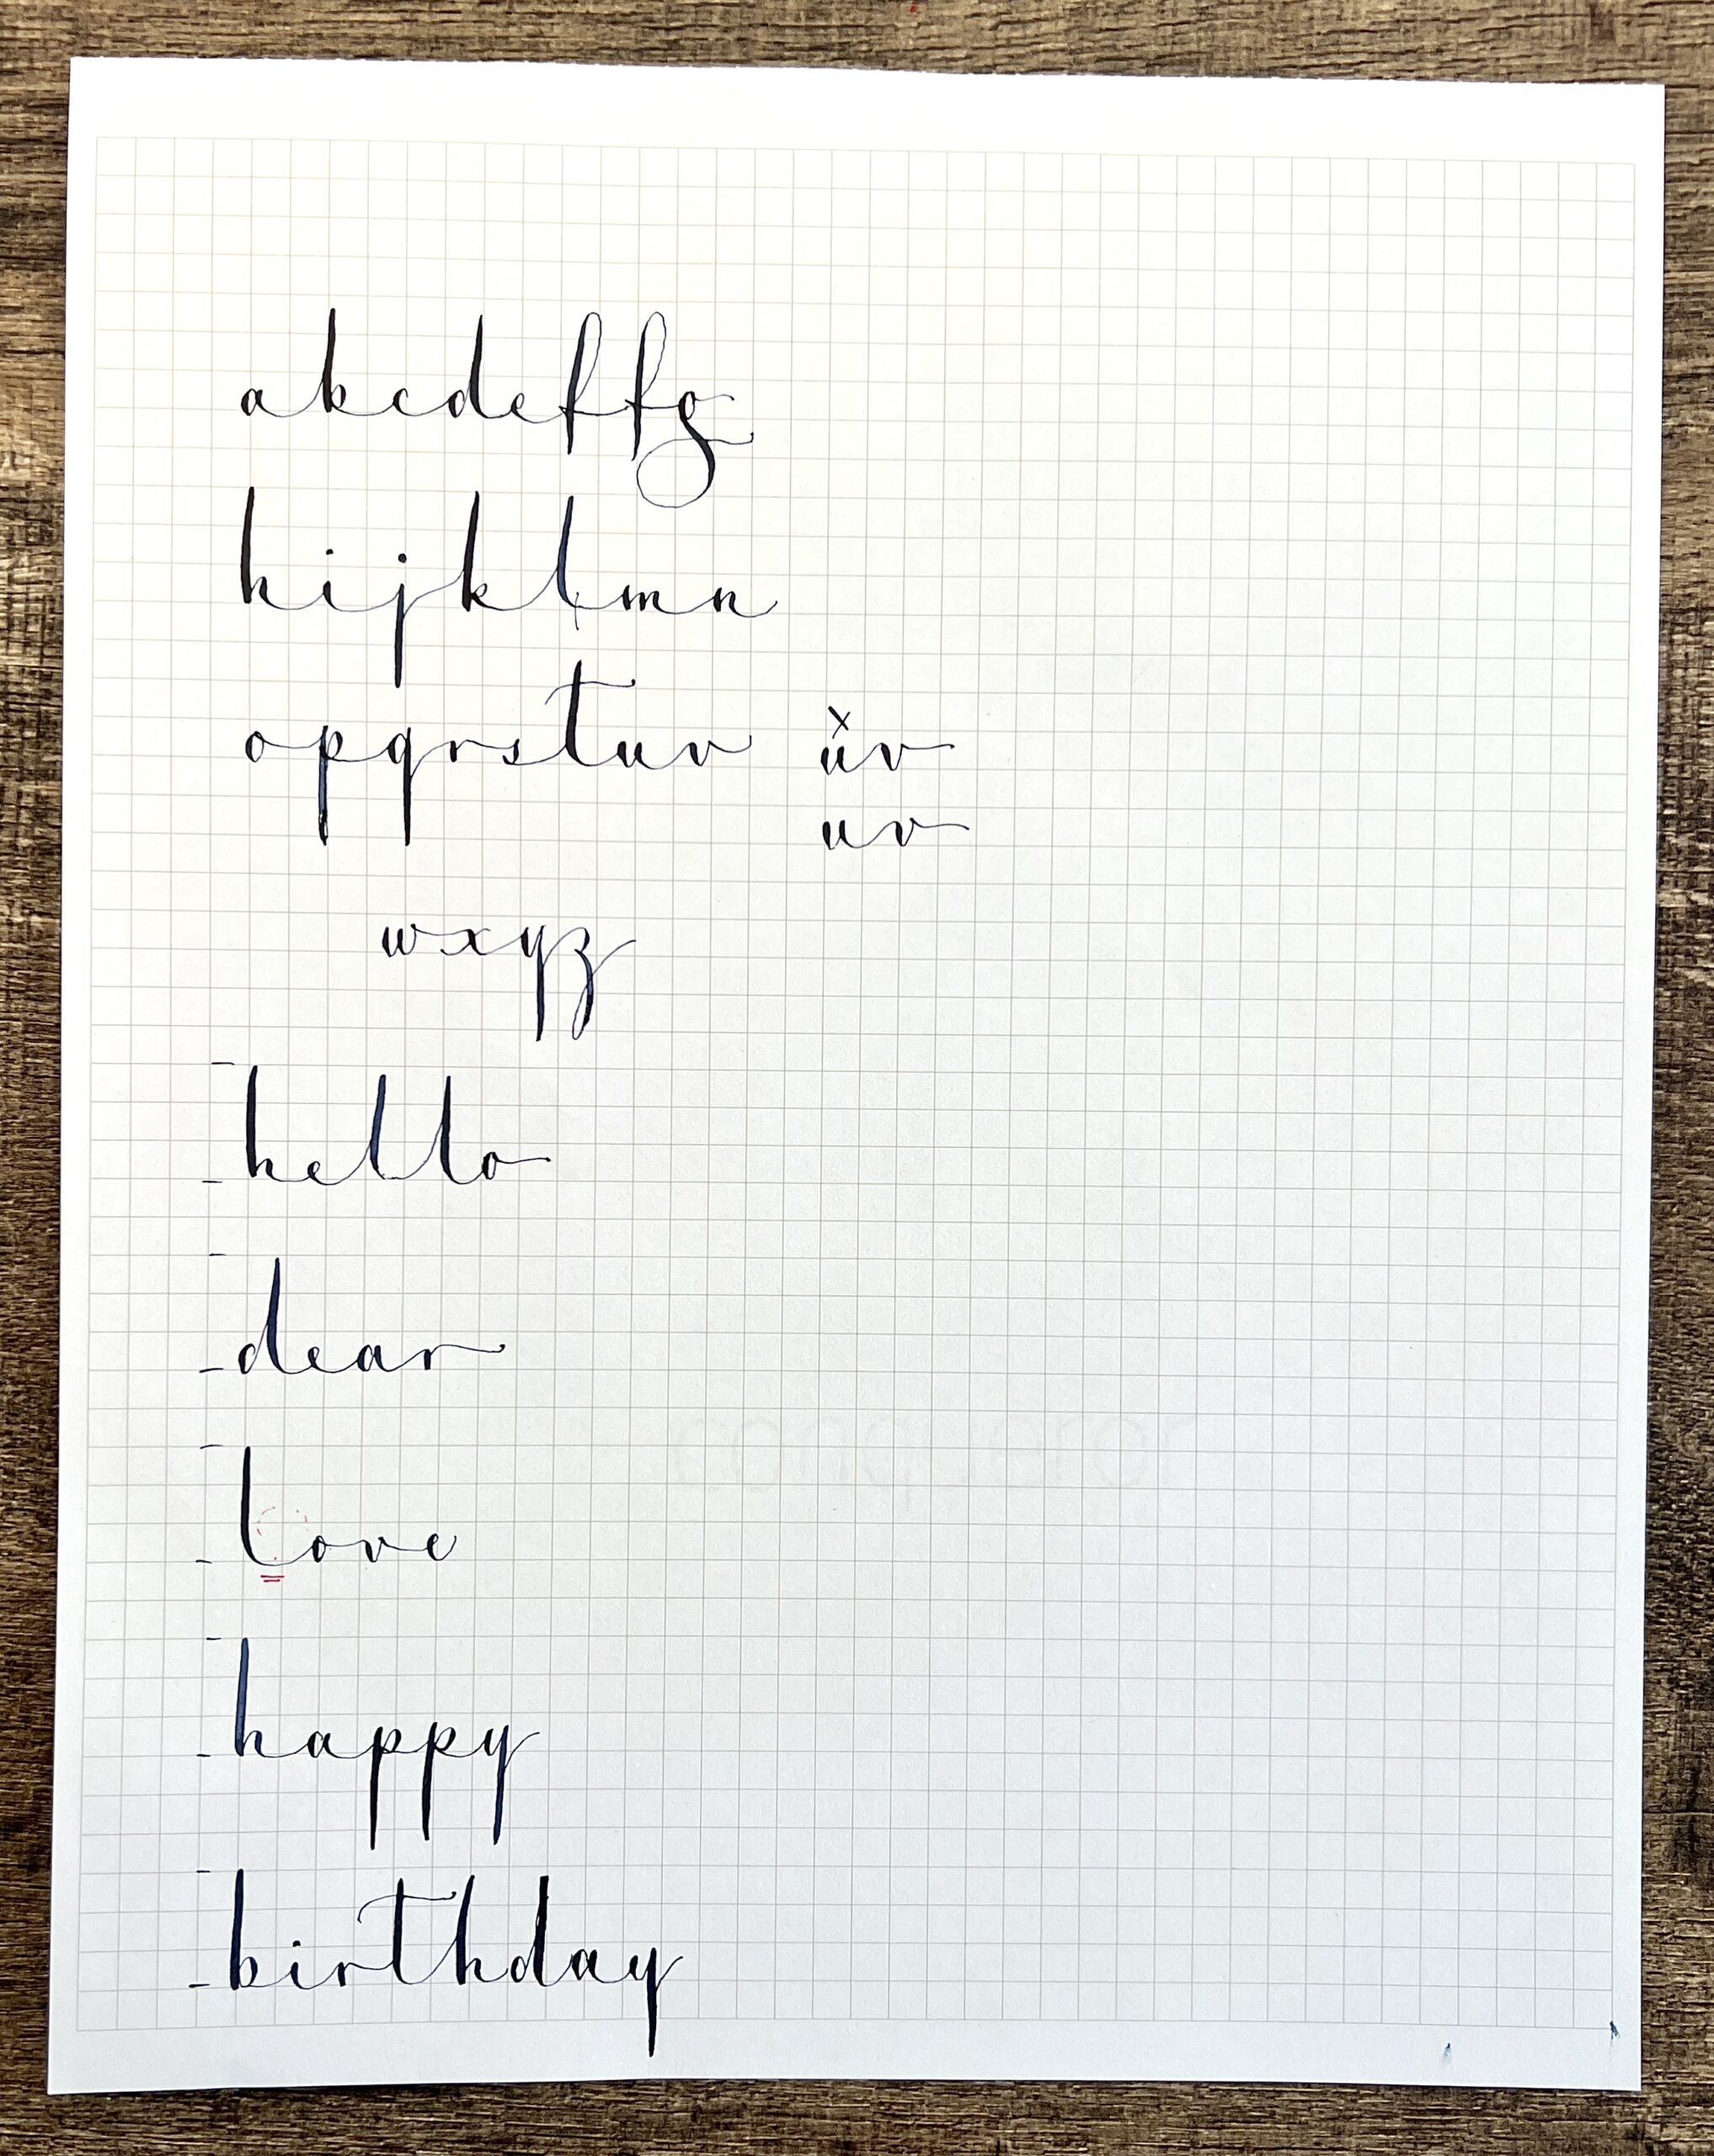 abcdeffg
hijklmn
opqrstuv uv
uv
wxyz
hello
dear
conqueror
love
happy
birthday